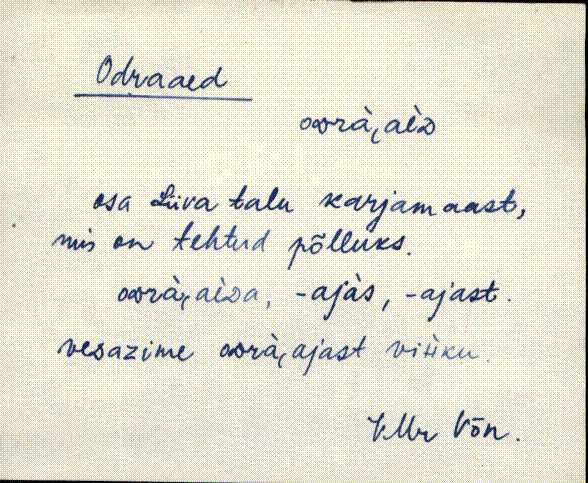 Odraaed
osrà,aìs
osa Liiva talu karjamaast,
mis on tehtud põlluks.
osrà,aìsa, -ajàs, -ajast.
vesazime osrà,ajast viiku.
VMr Võn.